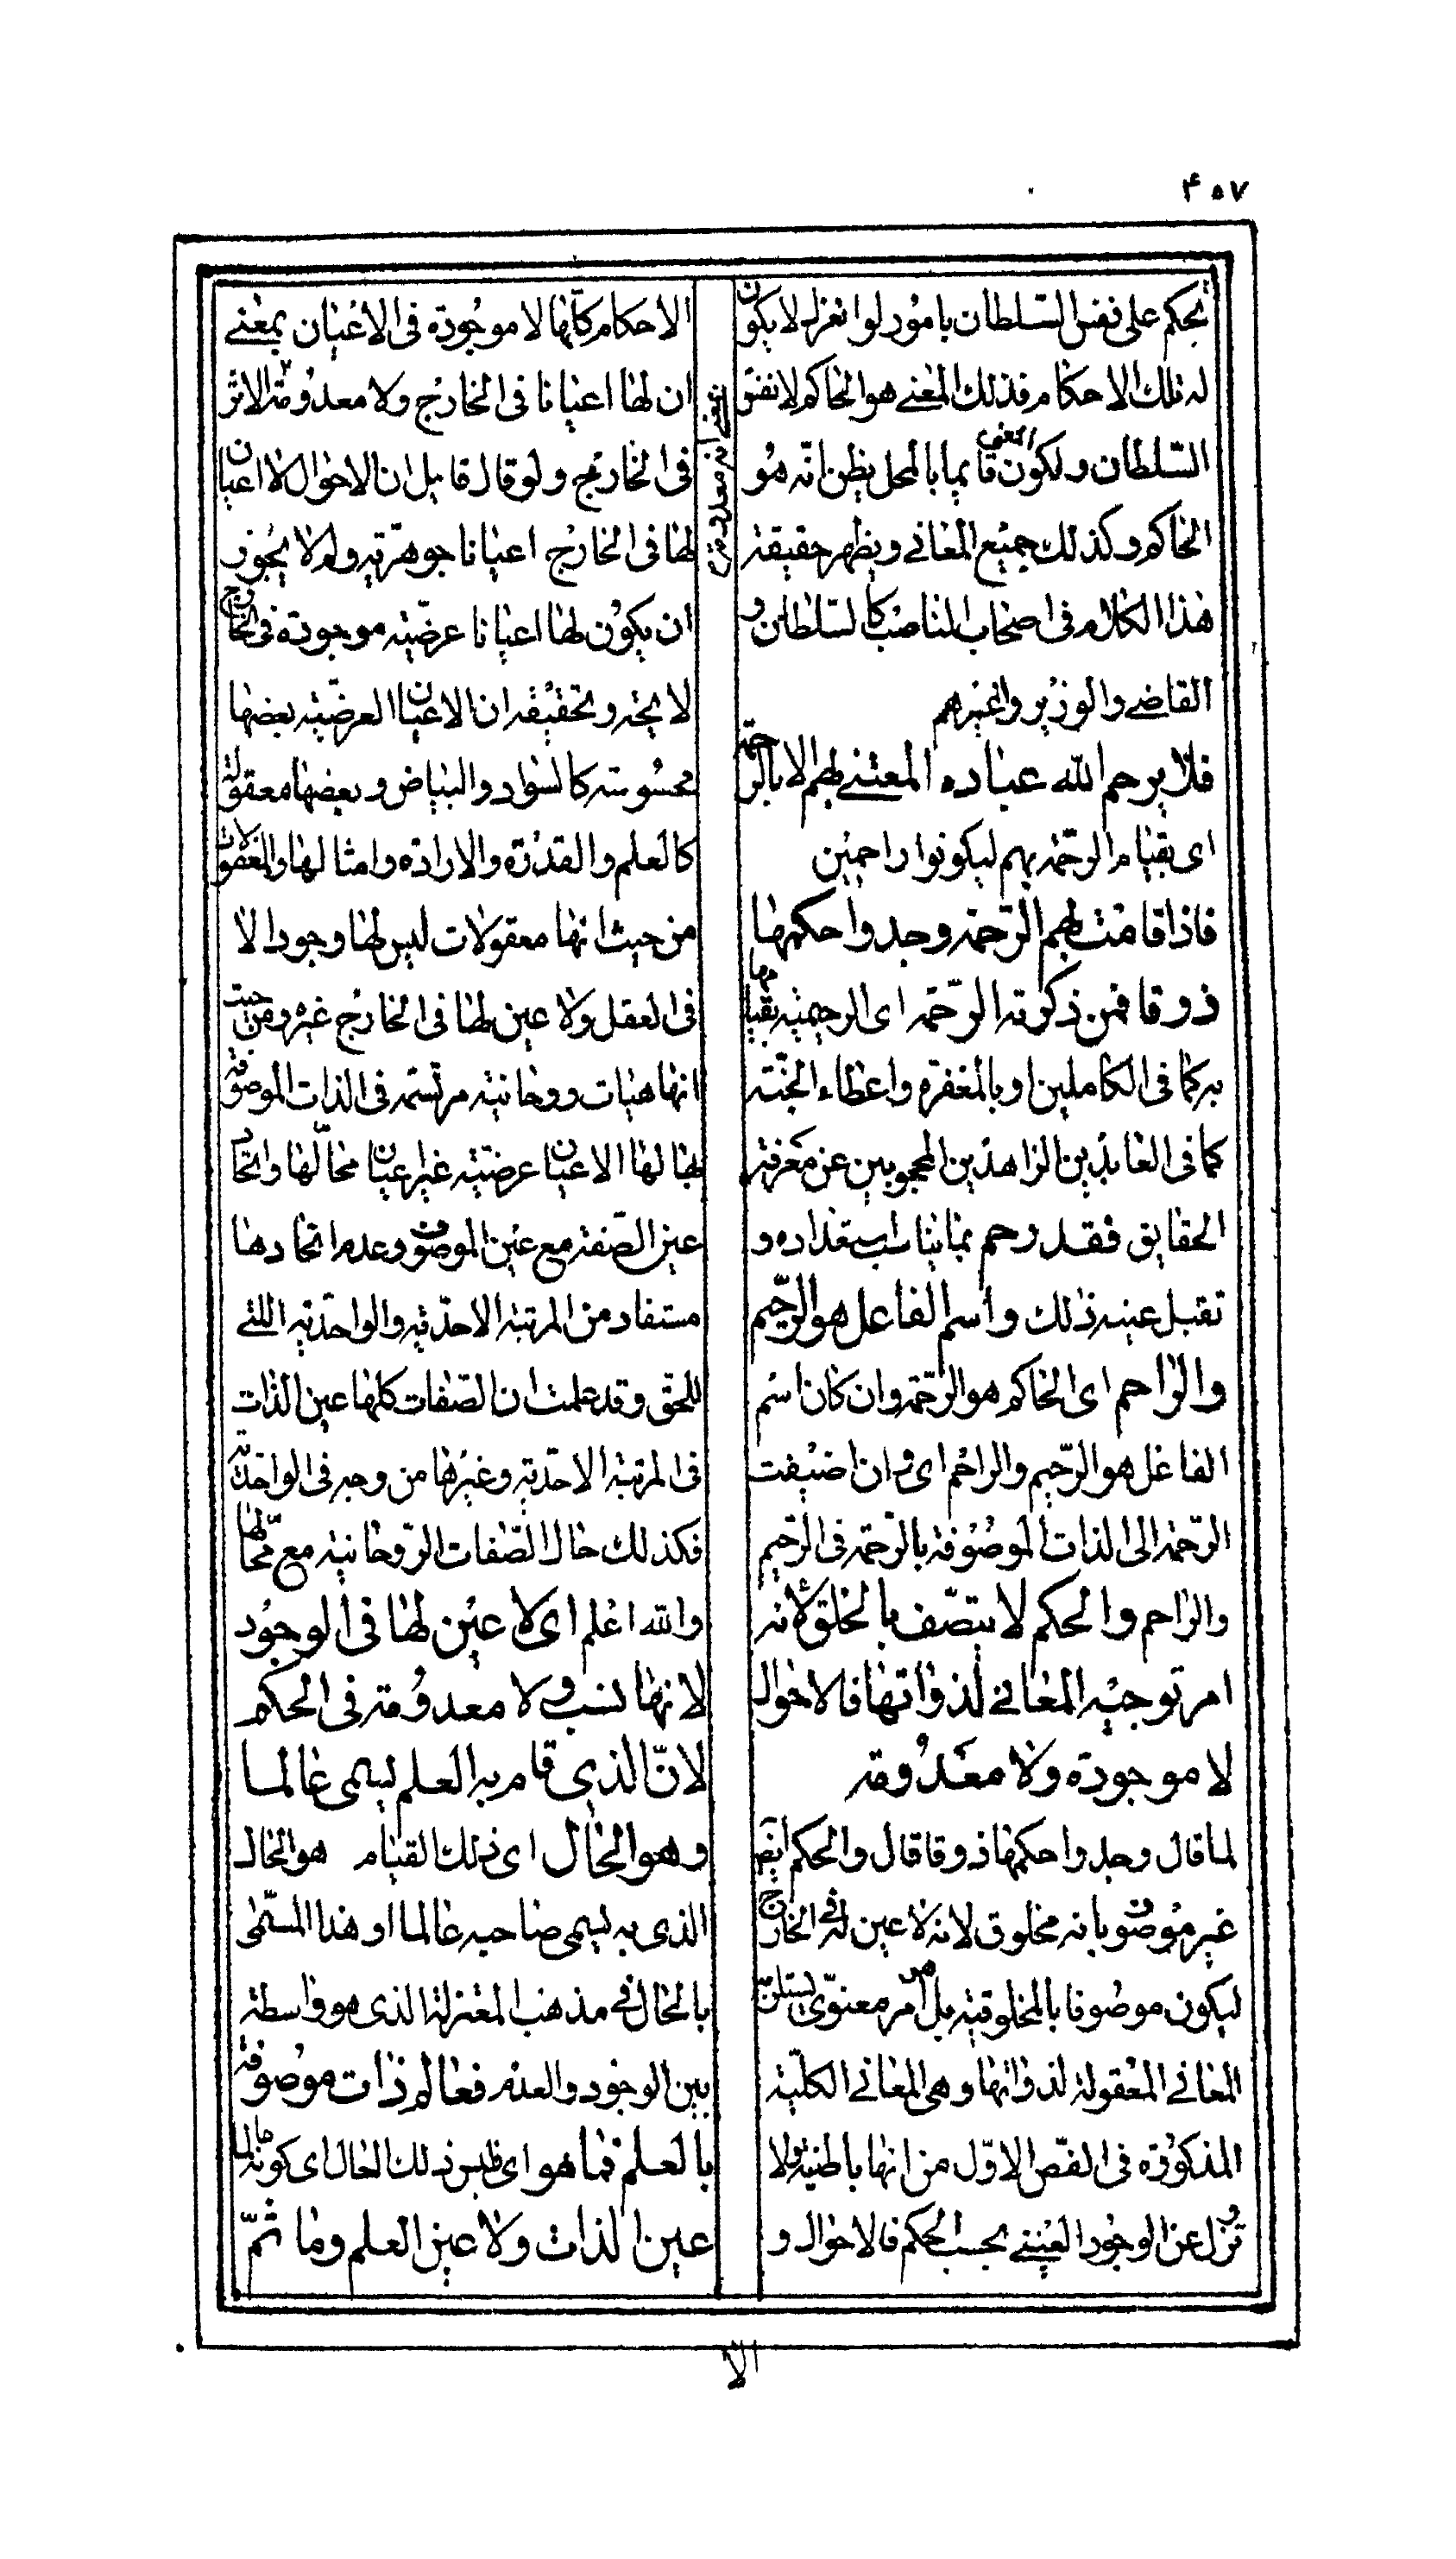 ۴۵۷
يحكم على نفس السلطان بامور لو انعزل لا يكون
له تلك الاحكام فذلك المعنى هو الحاكم لا نفس
السلطان ولكون المعنى قائما بالمحل يظن انه هو
الحاكم وكذلك جميع المعانى ويظهر حقيقة
هذا الكلام فى اصحاب المناصب كالسلاطين و
القاضى والوزير وغيرهم
فلا يرحم الله عباده المعتنى بهم الا بالرحمة
اى بقيام الرحمة بهم ليكونوا راحمين
فاذا قامت بهم الرحمة وجدوا حكمها
ذوقا فمن ذكرته الرحمة اى الرحيمية بقيامها
به كما فى الكاملين او بالمغفرة واعطاء الجنة
كما فى العابدين الزاهدين المحجوبين عن معرفة
الحقايق فقد رحم بما يناسب استعداده و
تقبل عينه ذلك واسم الفاعل هو الرحيم
والراحم اى الحاكم هو الرحمة وان كان اسم
الفاعل هو الرحيم والراحم اى وان اضيفت
الرحمة الى الذات الموصوفة بالرحمة فى الرحيم
والراحم والحكم لا يتصف بالخلق لانه
امر توجبه المعانى لذواتها فالاحوال
لا موجودة ولا معدومة
لما قال وجدوا حكمها ذوقا قال والحكم ايضا
غير موصوف بانه مخلوق لانه لا عين له فى الخارج
ليكون موصوفا بالمخلوقية بل هو امر معنوى يستلزمه
المعانى المعقولة لذواتها وهى المعانى الكلية
المذكورة فى الفص الاول من انها باطنية ولا
تزول عن الوجود العينى بحسب الحكم فالاحوال و
الاحكام كلها لا موجودة فى الاعيان بمعنى
ان لها اعيانا فى الخارج ولا معدومة الاثر
فى الخارج ولو قال قايل ان الاحوال لا اعيان
لها فى الخارج اعيانا جوهرية ولم لا يجوز
ان يكون لها اعيانا عرضية موجودة فى الخارج
لا يجه وتحقيقه ان الاعيان العرضية بعضها
محسوسة كالسواد والبياض وبعضها معقولة
كالعلم والقدرة والارادة وامثالها والمعقولات
من حيث انها معقولات ليس لها وجود الا
فى العقل ولا عين لها فى الخارج غيره ومن حيث
انها هيات روحانية مرتسمة فى الذات الموصوفة
بها لها الاعيان عرضية غير اعيان محالها واتحاد
عين الصفة مع عين الموصوف وعدم اتحادها
مستفاد من المرتبة الاحدية والواحدية اللتى
للحق وقد علمت ان الصفات كلها عين الذات
فى المرتبة الاحدية وغيرها من وجه فى الواحدية
فكذلك حال الصفات الروحانية مع محالها
والله اعلم اى لا عين لها فى الوجود
لانها نسب ولا معدومة فى الحكم
لان الذى قام به العلم يسمى عالما
وهو الحال اى ذلك القيام هو الحال
الذى به يسمى صاحبه عالما او هذا المسمى
بالحال فى مذهب المعتزلة الذى هو واسطة
بين الوجود والعدم فعالم ذات موصوفة
بالعلم فما هو اى فليس ذلك الحال اى كونه عالما
عين الذات ولا عين العلم وما ثم
الا